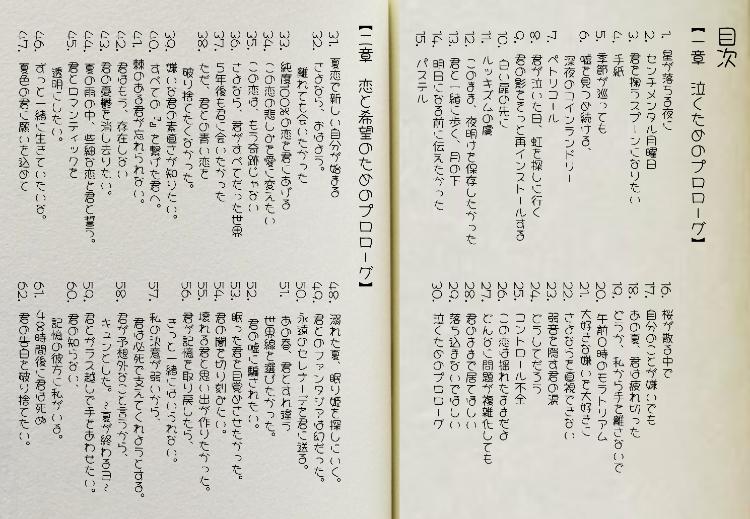 目次
【一章　泣くためのプロローグ】
1. 星が落ちる夜に
2. センチメンタル日曜日
3. 君を掬うスプーンになりたい
4. 手紙
5. 季節が巡っても
6. 嘘を見つめ続ける、
深夜のコインランドリー
7. ペトリコール
8. 君が泣いた日、虹を探しに行く
9. 君の影をそっと再インストールする
10. 白い扉の先に
11. ルッキズムの虜
12. このまま、夜明けを保存したかった
13. 君と一緒に歩く、月の下
14. 明日になる前に伝えたかった
15. パステル
16. 桜が散る中で
17. 自分のことが嫌いでも
18. あの夏、君は疲れ切った
19. どうか、私から手を離さないで
20. 午前0時のモラトリアム
21. 大好きな嫌いを大好きに
22. さよならを直視できない
23. 弱音を隠す君の涙
24. どうしてだろう
25. コントロール不全
26. この恋は揺れたままだよ
27. どんなに問題が複雑化しても
28. 君のままで居てほしい
29. 落ち込まないでほしい
30. 泣くためのプロローグ
【二章　恋と希望のためのプロローグ】
31. 夏恋で新しい自分が始まる
32. さよなら、おはよう。
離れても会いたかった
33. 純度100%の恋を君にあげる
34. この恋の悲しみを愛に変えたい
35. この恋は、もう奇跡じゃない
36. さよなら、君がすべてだった世界
37. 5年後も君に会いたかった
38. ただ、君との青い恋を
破り捨てたくなかった。
39. 嫌いな君の素直さが知りたい。
40. すべての『もし』を繋げた君へ。
41. 棘のある君が忘れられない。
42. 君はもう、存在しない
43. 君の憂鬱を消し去りたい。
44. 夏の雨の中、些細な恋を君と誓う。
45. 君とロマンティックを
透明にしたい。
46. ずっと一緒に生きていたいな。
47. 夏色の君に願いを込めて
48. 溺れた夏、眠り姫を探しにいく。
49. 君とのファンタジアは幻だった。
50. 永遠のセレナーデを君に送る。
51. あの春、君とすれ違う
世界線を選びたかった。
52. 君の嘘に騙されたい。
53. 眠った君を目覚めさせたかった。
54. 君の闇を切り刻みたい。
55. 壊れる君と思い出が作りたかった。
56. 君が記憶を取り戻したら、
きっと一緒にはいられない。
57. 私の決意が弱いから、
君は必死で支えてくれようとする。
58. 君が予想外なことを言うから、
キュンとした。～夏が終わる日～
59. 君とガラス越しで手をあわせたい。
60. 君の知らない、
記憶の彼方に私がいる。
61. 48時間後に君は死ぬ
62. 君の告白を破り捨てたい。